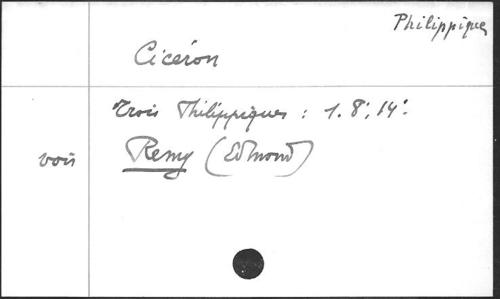 Philippiques
Cicéron
Trois Philippiques : 1. 8e, 14e.
voir Remy (Edmond)